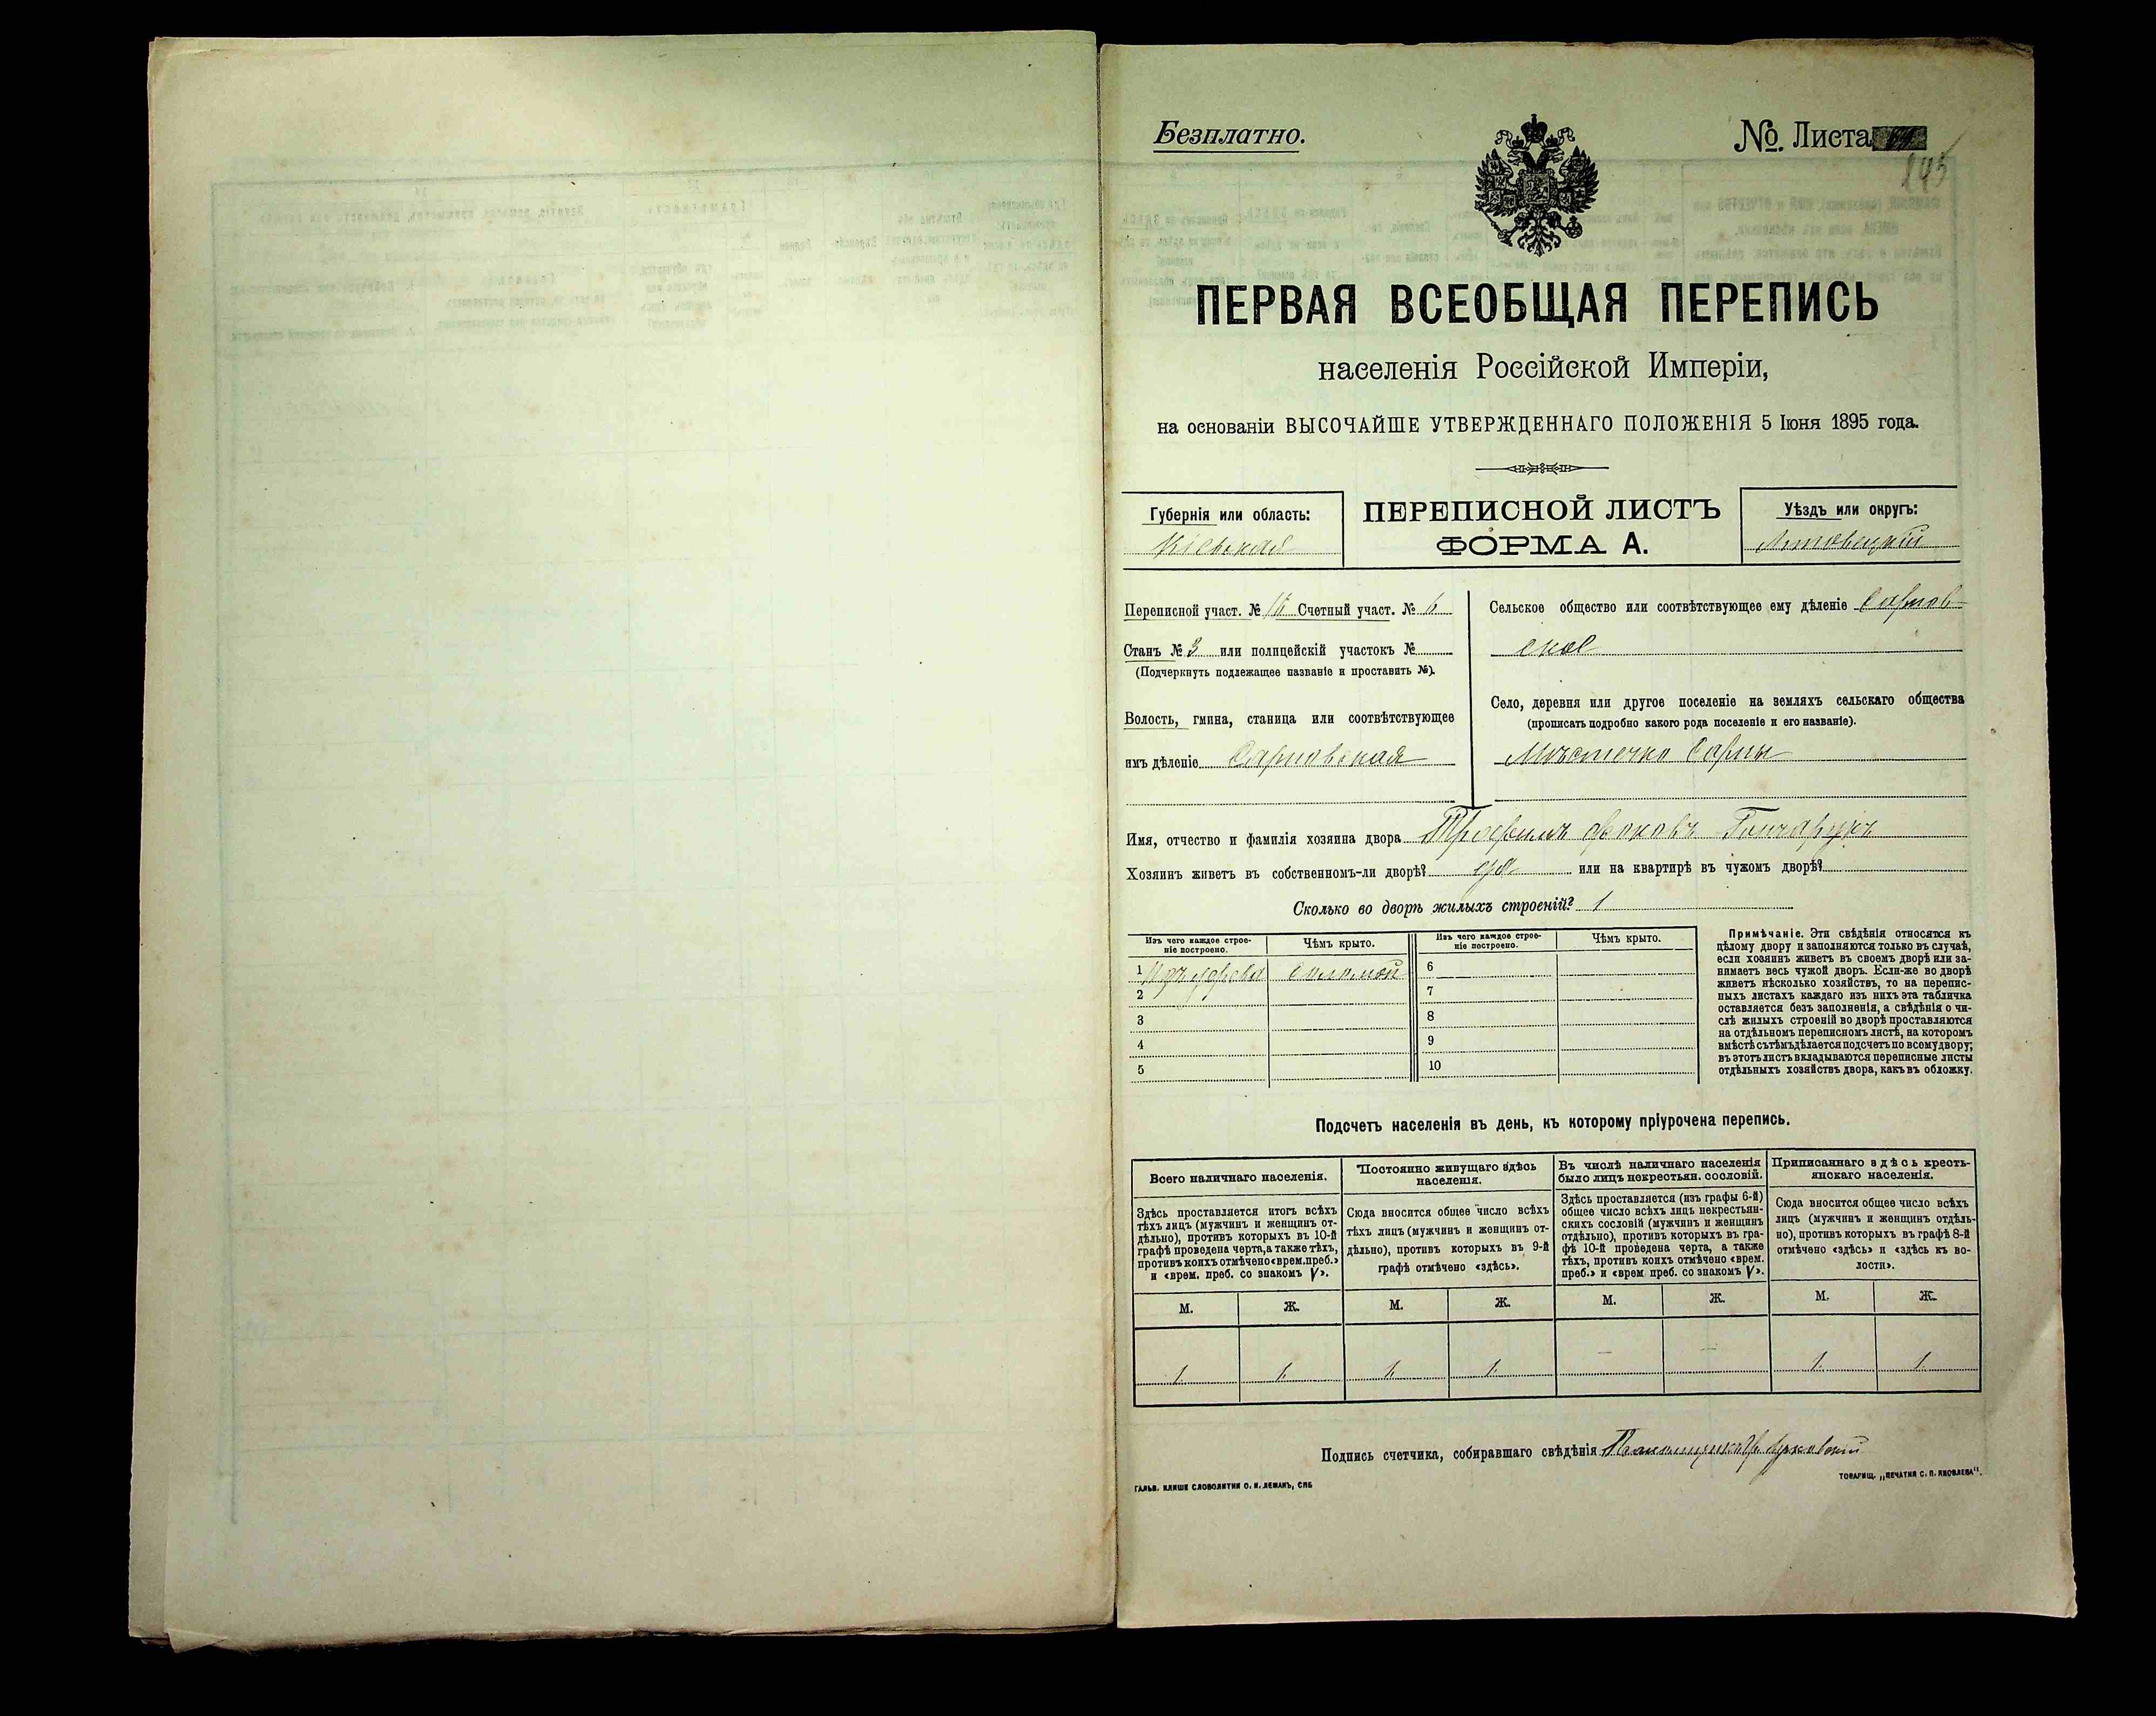 Безплатно.
№ Листа
145
ПЕРВАЯ ВСЕОБЩАЯ ПЕРЕПИСЬ
населенія Россійской Имперіи,
на основаніи ВЫСОЧАЙШЕ УТВЕРЖДЕННАГО ПОЛОЖЕНІЯ 5 Іюня 1895 года.
Губернія или область:
Кіевская
ПЕРЕПИСНОЙ ЛИСТЪ
ФОРМА А.
Уѣздъ или округъ:
Липовецкій
Переписной участ. № 16 Счетный участ. № 6
Станъ № 3 или полицейскій участокъ №
(Подчеркнуть подлежащее названіе и проставить №).
Волость, гмина, станица или соотвѣтствующее
имъ дѣленіе Сарновская
Сельское общество или соотвѣтствующее ему дѣленіе Сарнов-
ское
Село, деревня или другое поселеніе на земляхъ сельскаго общества
(прописать подробно какого рода поселеніе и его названіе).
Мѣстечко Сарны
Имя, отчество и фамилія хозяина двора Трофимъ Фоковъ Гончарукъ
Хозяинъ живетъ въ собственномъ-ли дворѣ? да или на квартирѣ въ чужомъ дворѣ?
Сколько во дворѣ жилыхъ строеній? 1
Изъ чего каждое строе-
ніе построено.
Чѣмъ крыто.
Изъ чего каждое строе-
ніе построено.
Чѣмъ крыто.
1 Изъ дерева Соломой
2
3
4
5
6
7
8
9
10
Примѣчаніе. Эти свѣдѣнія относятся къ
цѣлому двору и заполняются только въ случаѣ,
если хозяинъ живетъ въ своемъ дворѣ или за-
нимаетъ весь чужой дворъ. Если-же во дворѣ
живетъ нѣсколько хозяйствъ, то на перепис-
ныхъ листахъ каждаго изъ нихъ эта табличка
оставляется безъ заполненія, а свѣдѣнія о чи-
слѣ жилыхъ строеній во дворѣ проставляются
на отдѣльномъ переписномъ листѣ, на которомъ
вмѣстѣ съ тѣмъ дѣлается подсчетъ по всему двору;
въ этотъ листъ вкладываются переписные листы
отдѣльныхъ хозяйствъ двора, какъ въ обложку.
Подсчетъ населенія въ день, къ которому пріурочена перепись.
Всего наличнаго населенія.
Здѣсь проставляется итогъ всѣхъ
тѣхъ лицъ (мужчинъ и женщинъ от-
дѣльно), противъ которыхъ въ 10-й
графѣ проведена черта, а также тѣхъ,
противъ коихъ отмѣчено «врем. преб.»
и «врем. преб. со знакомъ V».
Постоянно живущаго здѣсь
населенія.
Сюда вносится общее число всѣхъ
тѣхъ лицъ (мужчинъ и женщинъ от-
дѣльно), противъ которыхъ въ 9-й
графѣ отмѣчено «здѣсь».
Въ числѣ наличнаго населенія
было лицъ некрестьян. сословій.
Здѣсь проставляется (изъ графы 6-й)
общее число всѣхъ лицъ некрестьян-
скихъ сословій (мужчинъ и женщинъ
отдѣльно), противъ которыхъ въ гра-
фѣ 10-й проведена черта, а также
тѣхъ, противъ коихъ отмѣчено «врем.
преб.» и «врем преб. со знакомъ V».
Приписаннаго здѣсь кресть-
янскаго населенія.
Сюда вносится общее число всѣхъ
лицъ (мужчинъ и женщинъ отдѣль-
но), противъ которыхъ въ графѣ 8-й
отмѣчено «здѣсь» и «здѣсь къ во-
лости».
М. Ж. М. Ж. М. Ж. М. Ж.
1. 1. 1. 1. — — 1. 1.
Подпись счетчика, собиравшаго свѣдѣнія
ГАЛЬВ. КЛИШЕ СЛОВОЛИТНИ О. И. ЛЕМАНЪ, СПБ
ТОВАРИЩ. „ПЕЧАТНЯ С. П. ЯКОВЛЕВА".